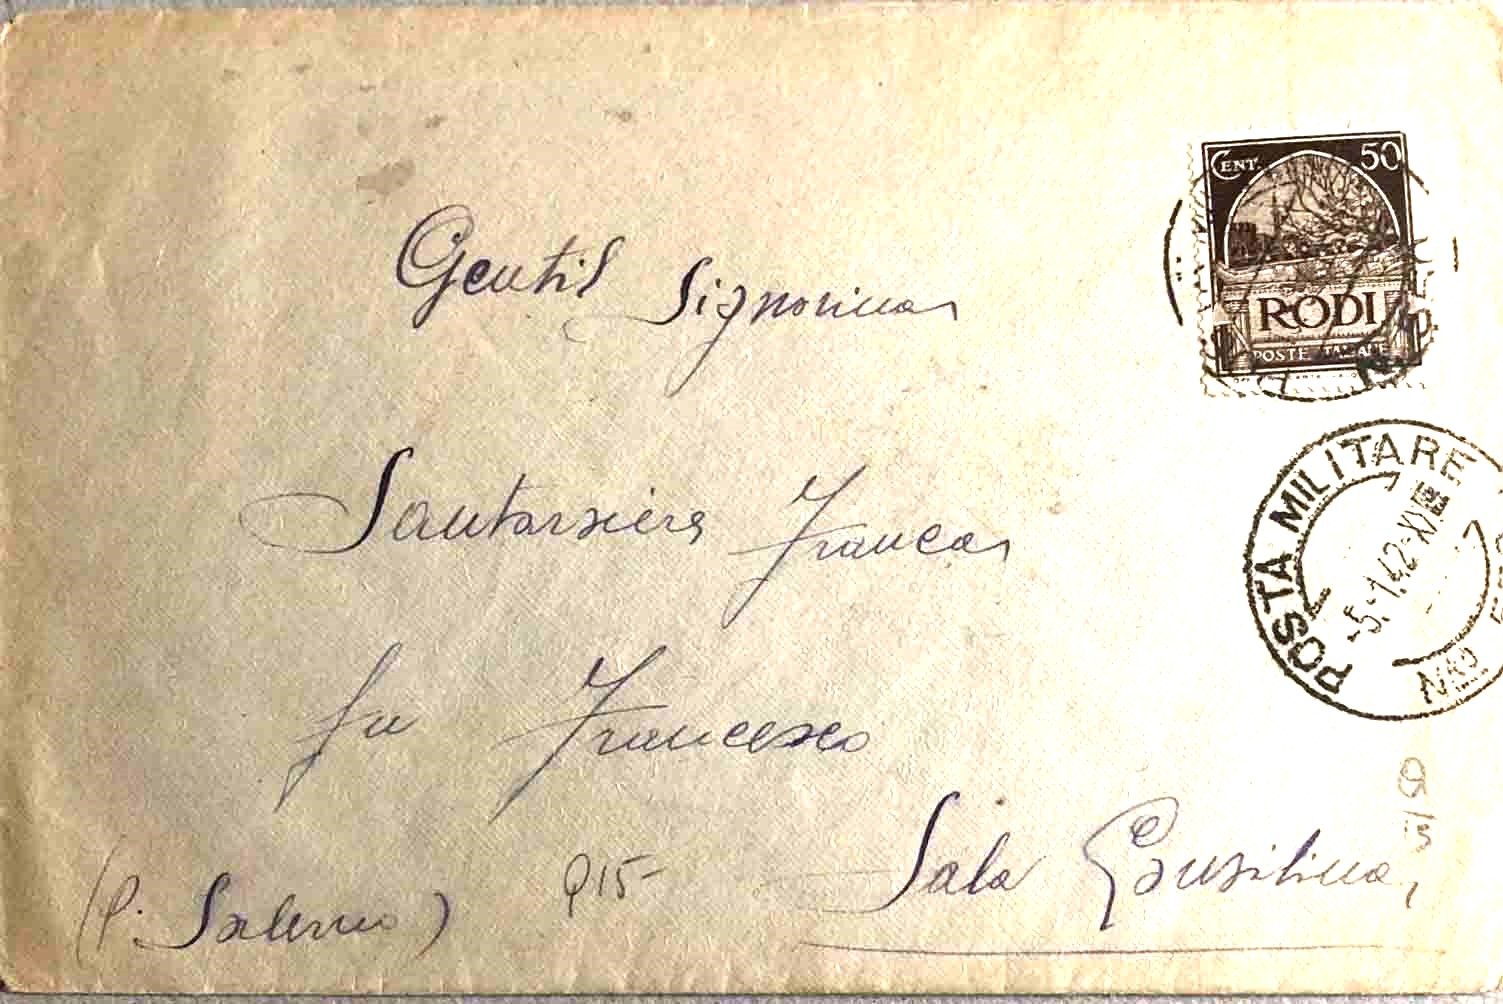 CENT. 50
RODI
POSTE ITALIANE
POSTA MILITARE
-5.1.42-XX
Gentil Signorina
Santarsiera Franca
fu Francesco
Sala Consilina,
(p. Salerno)